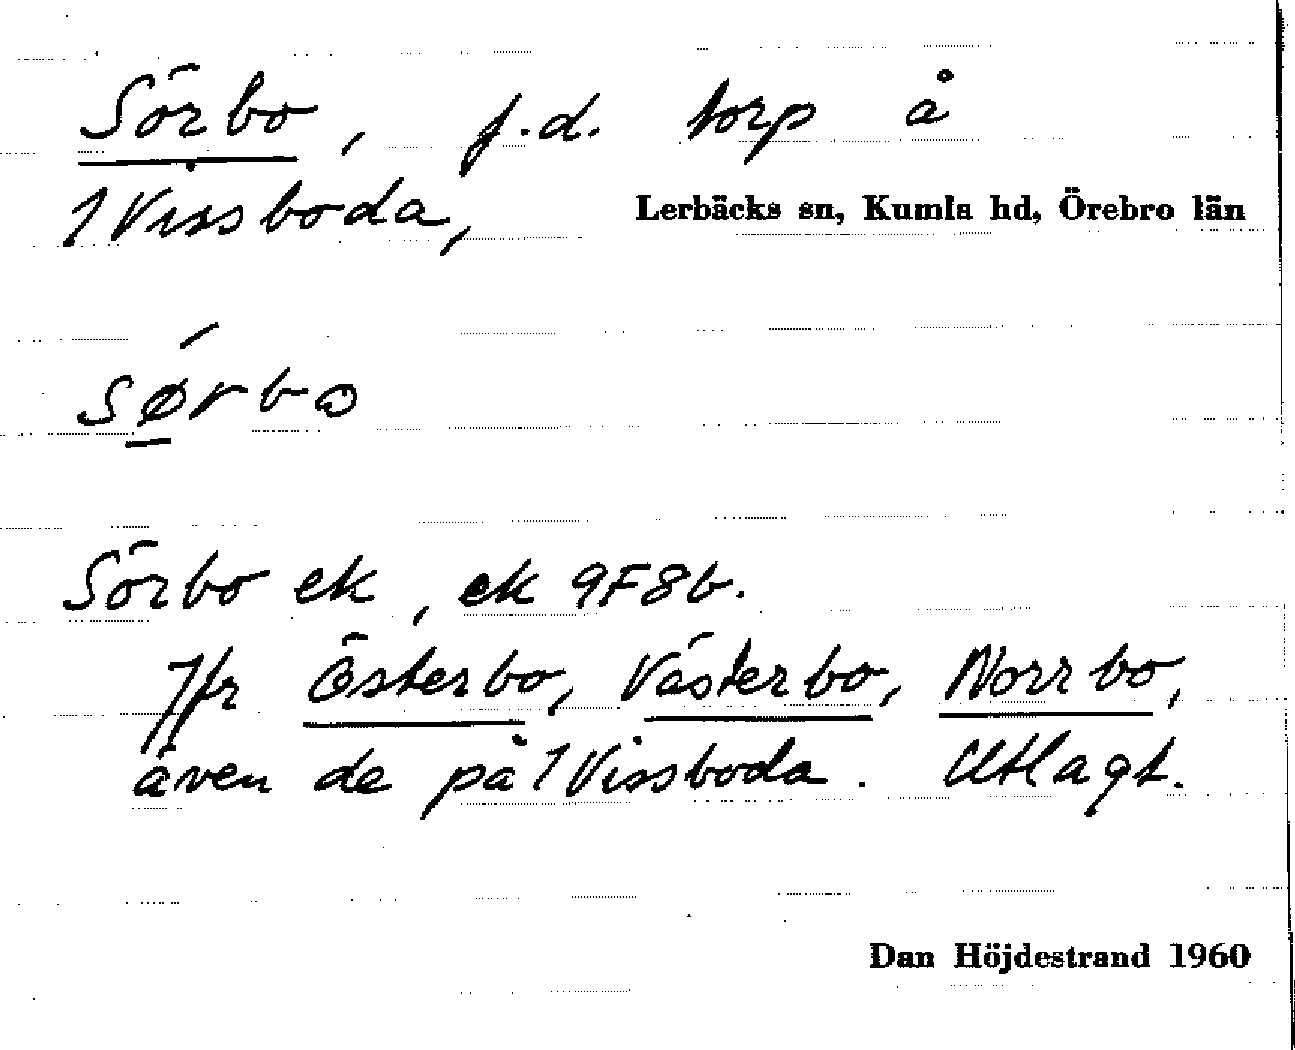 Sörbo, f.d. torp å
1 Vissboda,
Lerbäcks sn, Kumla hd, Örebro län
sørbo
Sörbo ek, ek 9F8b.
Jfr Österbo, Västerbo, Norrbo,
även de på 1 Vissboda. Utlagt.
Dan Höjdestrand 1960